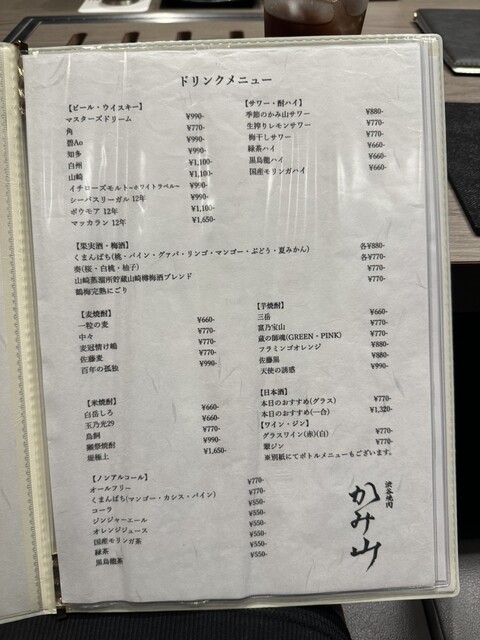 ドリンクメニュー
【ビール・ウイスキー】
マスターズドリーム ¥990-
角 ¥770-
碧Ao ¥990-
知多 ¥990-
白州 ¥1,100-
山崎 ¥1,100-
イチローズモルト~ホワイトラベル~ ¥990-
シーバスリーガル 12年 ¥990-
ボウモア 12年 ¥1,100-
マッカラン 12年 ¥1,650-
【サワー・酎ハイ】
季節のかみ山サワー ¥880-
生搾りレモンサワー ¥770-
梅干しサワー ¥770-
緑茶ハイ ¥660-
黒烏龍ハイ ¥660-
国産モリンガハイ ¥770-
【果実酒・梅酒】
くまんばち(桃・パイン・グァバ・リンゴ・マンゴー・ぶどう・夏みかん) 各¥880-
奏(桜・白桃・柚子) 各¥770-
山崎蒸溜所貯蔵山崎樽梅酒ブレンド ¥770-
鶴梅完熟にごり ¥770-
【麦焼酎】
一粒の麦 ¥660-
中々 ¥770-
麦冠情け嶋 ¥770-
佐藤麦 ¥770-
百年の孤独 ¥990-
【芋焼酎】
三岳 ¥770-
富乃宝山 ¥770-
蔵の師魂(GREEN・PINK) ¥770-
フラミンゴオレンジ ¥880-
佐藤黒 ¥880-
天使の誘惑 ¥990-
【米焼酎】
白岳しろ ¥660-
玉乃光29 ¥660-
鳥飼 ¥770-
獺祭焼酎 ¥990-
堀極上 ¥1,650-
【日本酒】
本日のおすすめ(グラス) ¥770-
本日のおすすめ(一合) ¥1,320-
【ワイン・ジン】
グラスワイン(赤)(白) ¥770-
翠ジン ¥770-
※別紙にてボトルメニューもございます。
【ノンアルコール】
オールフリー ¥770-
くまんばち(マンゴー・カシス・パイン) ¥770-
コーラ ¥550-
ジンジャーエール ¥550-
オレンジジュース ¥550-
国産モリンガ茶 ¥550-
緑茶 ¥550-
黒烏龍茶 ¥550-
渋谷焼肉
かみ山